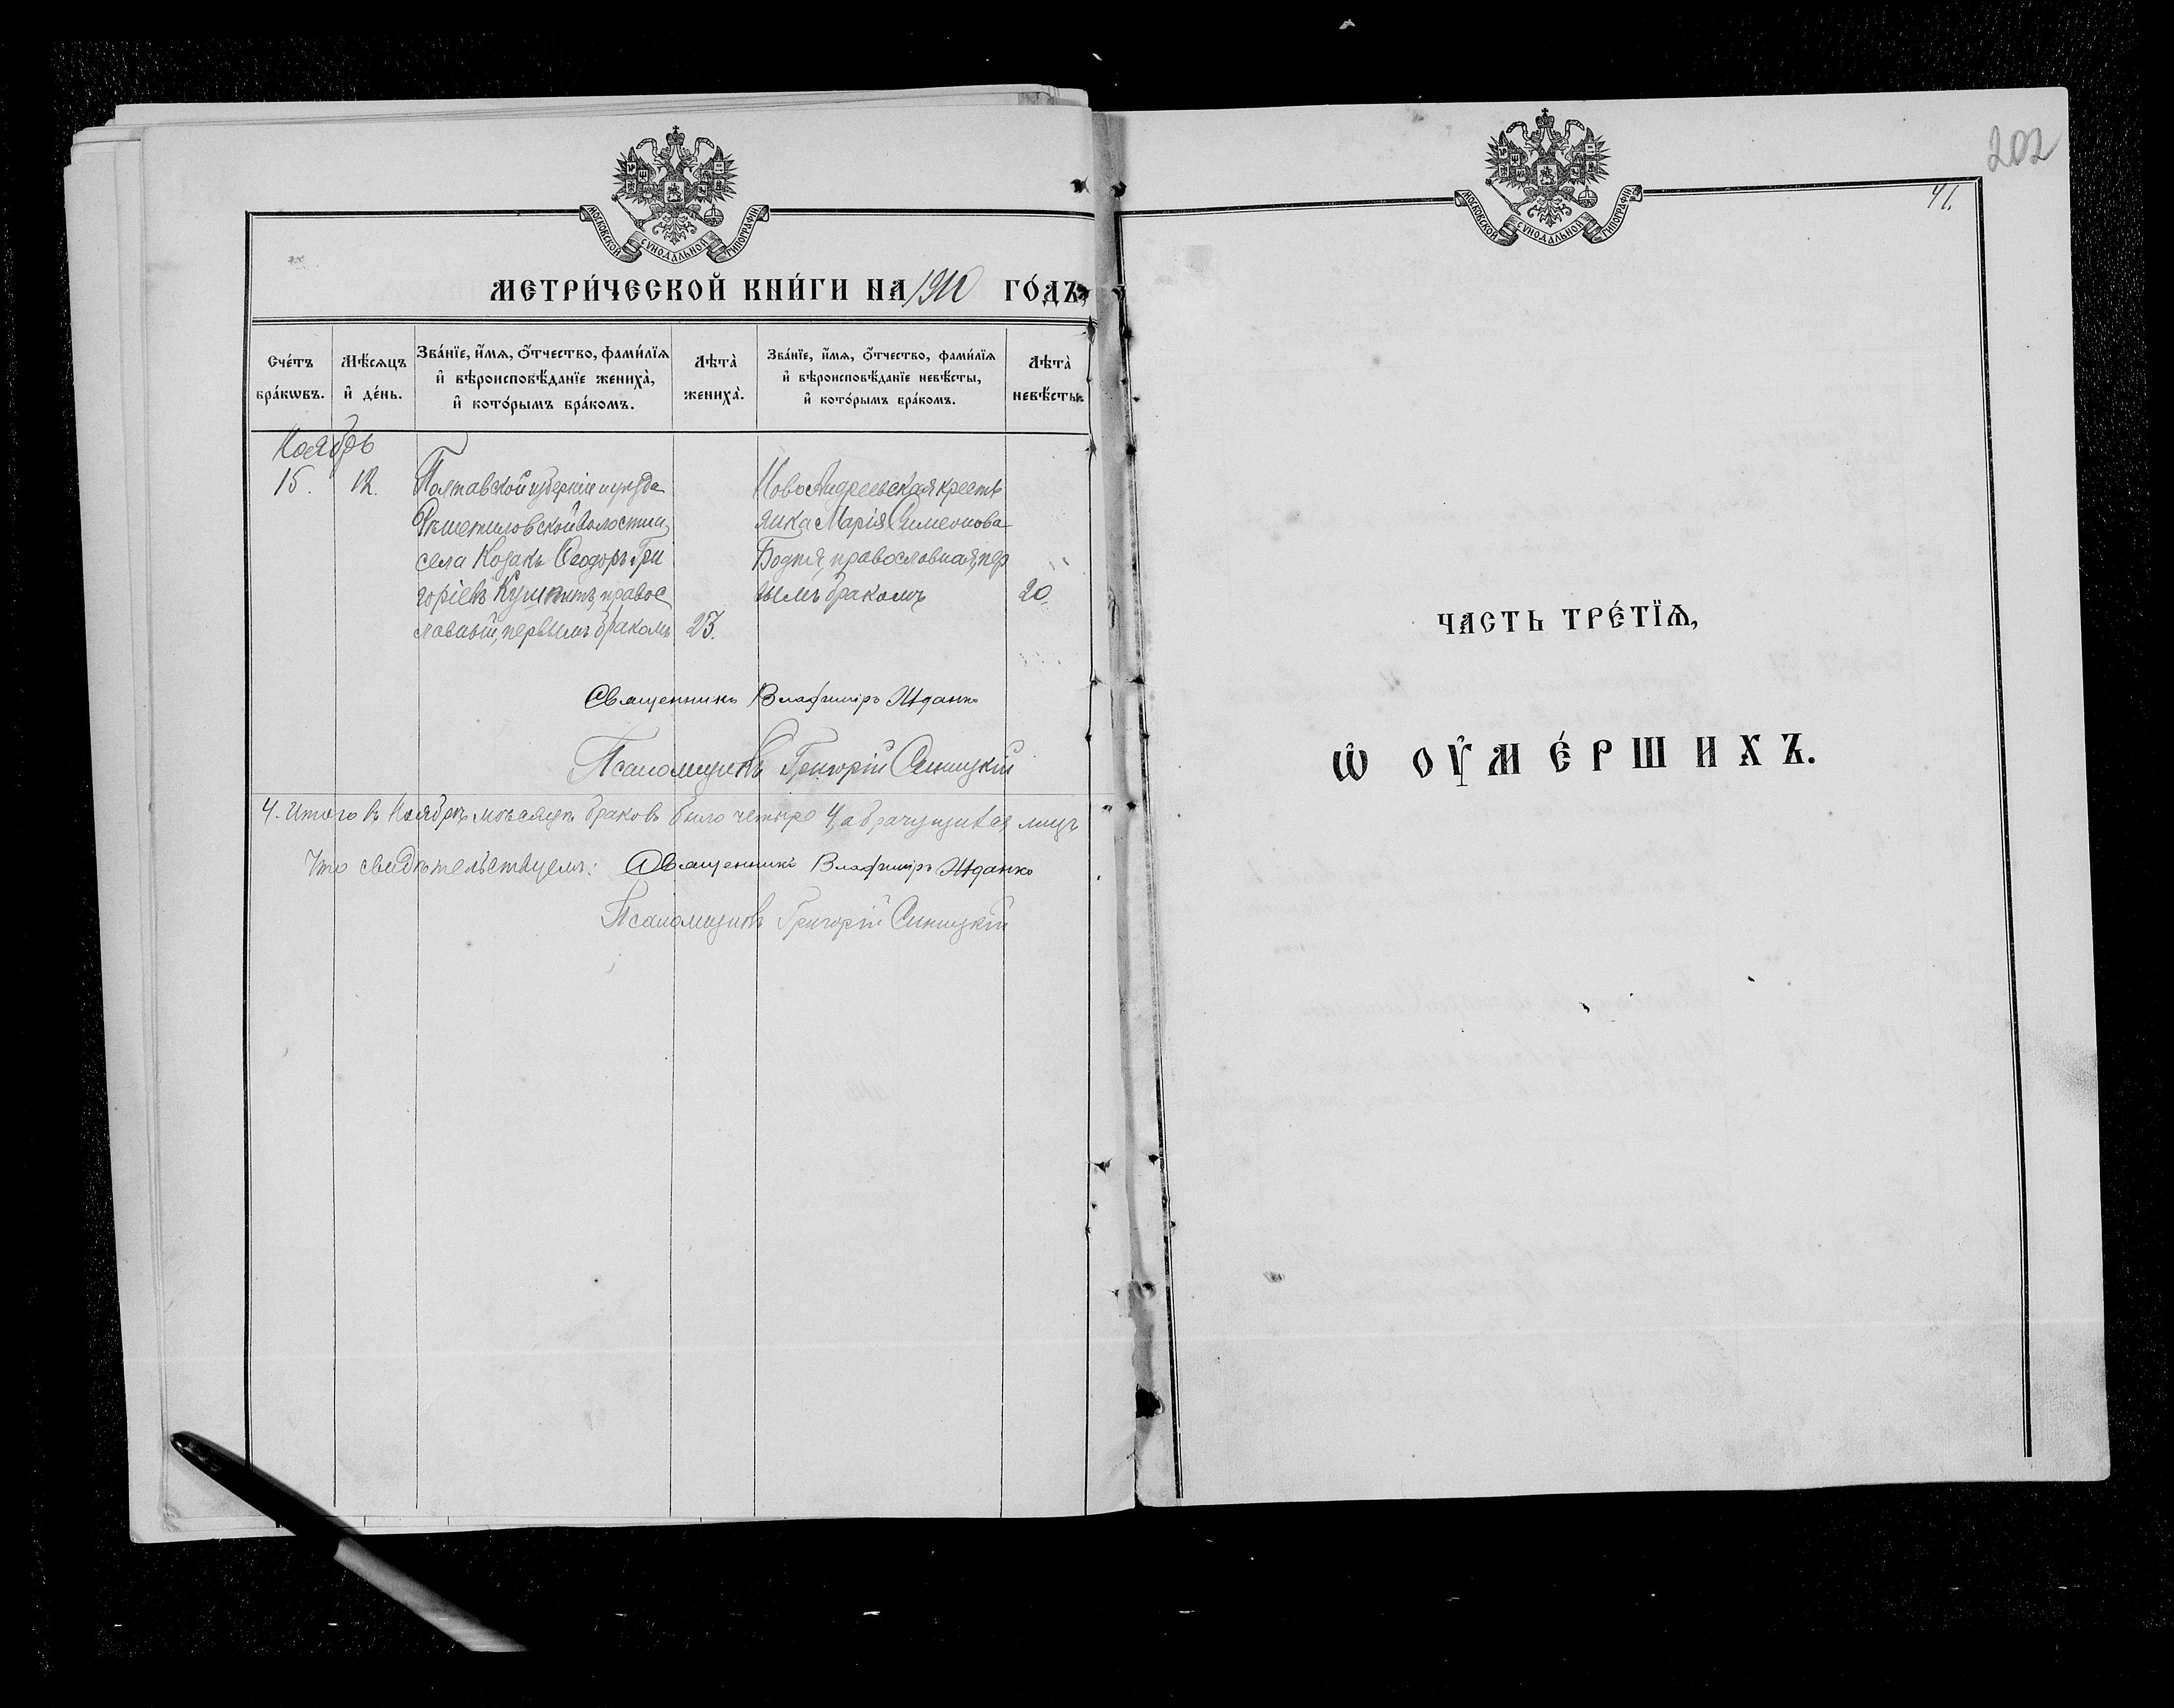 МОСКОВСКОЙ СѴНОДАЛЬНОЙ ТИПОГРАФІИ
МЕТРИ́ЧЕСКОЙ КНИ́ГИ НА 1910 ГО́ДЪ,
Сче́тъ бра́кѡвъ.
Мѣ́сѧцъ и҆ де́нь.
Зва́нїе, и҆́мѧ, ѻ҆́тчество, фами́лїѧ
и҆ вѣроисповѣ́данїе жениха̀,
и҆ кото́рымъ бра́комъ.
Лѣта̀ жениха̀.
Зва́нїе, и҆́мѧ, ѻ҆́тчество, фами́лїѧ
и҆ вѣроисповѣ́данїе невѣ́сты,
и҆ кото́рымъ бра́комъ.
Лѣта̀ невѣ́сты.
Ноябрь
15. 12.
Полтавской губерніи и уѣзда
Рѣшетиловской волости и
села Козакъ Ѳеодоръ Гри
горіевъ правос
лавный, первымъ бракомъ 23.
Ново Андреевская кресть
янка Марія Симеонова
Бодня, православная, пер
вымъ бракомъ 20.
Священникъ Владиміръ Жданко
Псаломщикъ Григорій Синицкій
4. Итого въ Ноябрѣ мѣсяцѣ браковъ было четыре 4, а брачущихся лицъ
Что свидѣтельствуемъ: Священникъ Владиміръ Жданко
Псаломщикъ Григорій Синицкій
202
41.
МОСКОВСКОЙ СѴНОДАЛЬНОЙ ТИПОГРАФІИ
ЧАСТЬ ТРЕ́ТЇѦ,
Ѡ҆ ОУ҆МЕ́РШИХЪ.